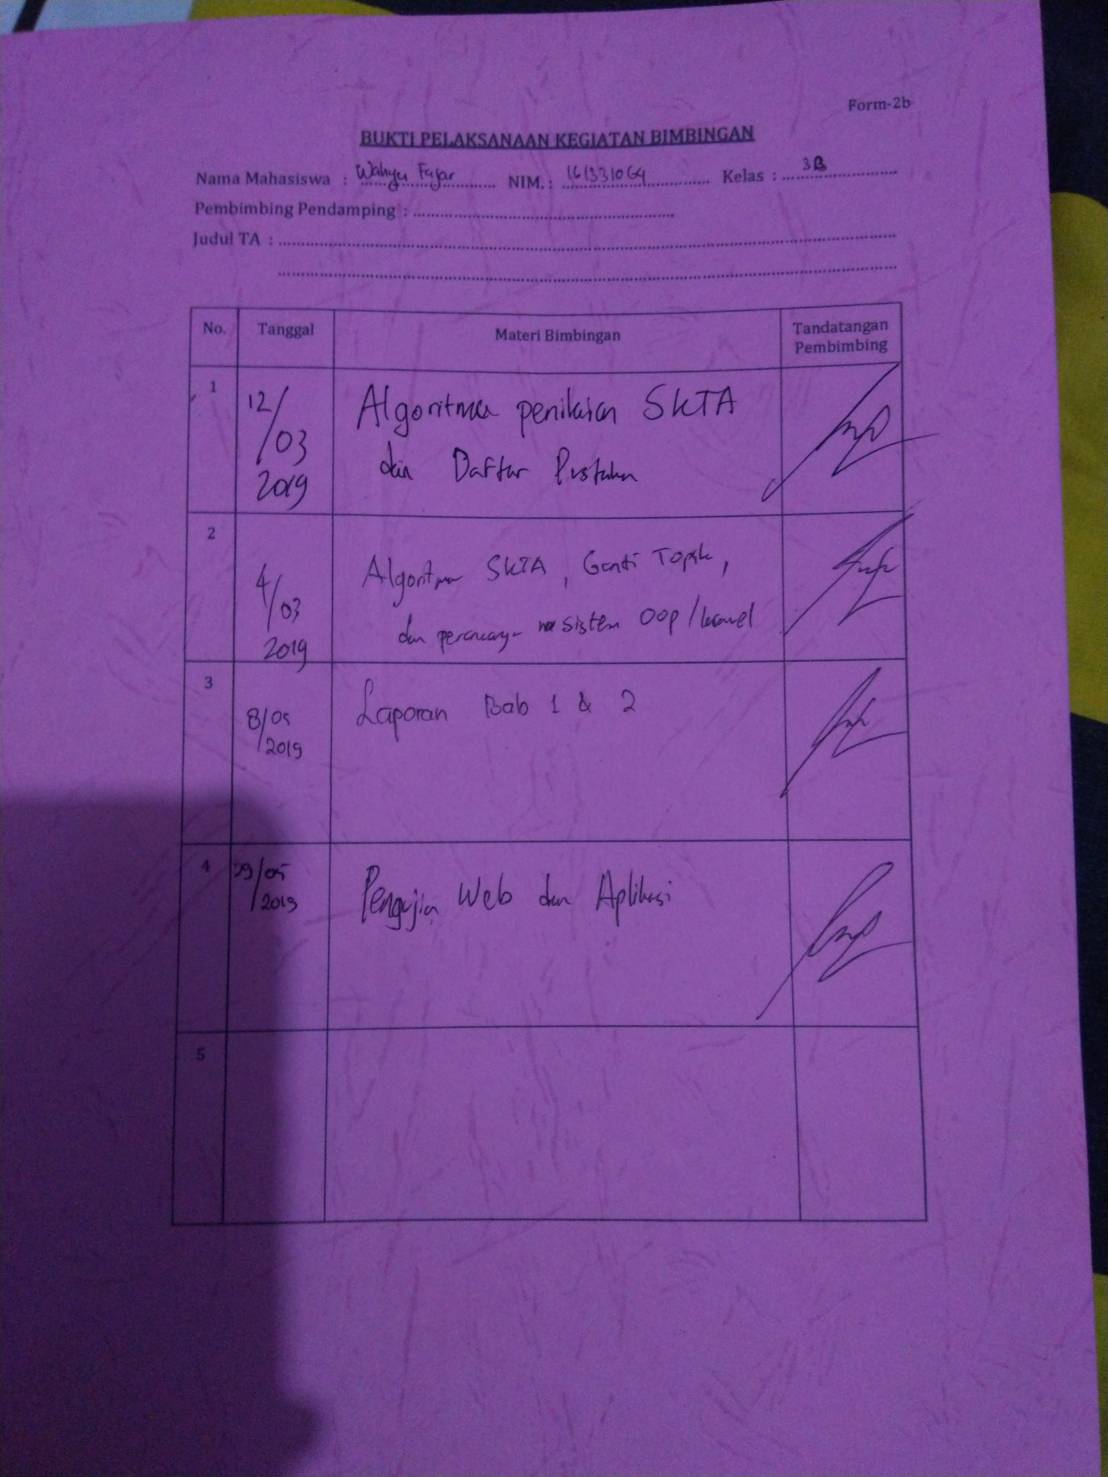 Form-2b
BUKTI PELAKSANAAN KEGIATAN BIMBINGAN
Nama Mahasiswa : Wahyu Fajar NIM. : 161331064 Kelas : 3B
Pembimbing Pendamping :
Judul TA :
No. Tanggal Materi Bimbingan Tandatangan Pembimbing
1 12/03 2019 Algoritma penilaian SKTA
dan Daftar Pustaka
2 4/03 2019 Algoritma SKTA, Ganti Topik,
dan sistem OOP/
3 8/05/2019 Laporan Bab 1 & 2
4 29/05/2019 Pengujian Web dan Aplikasi
5